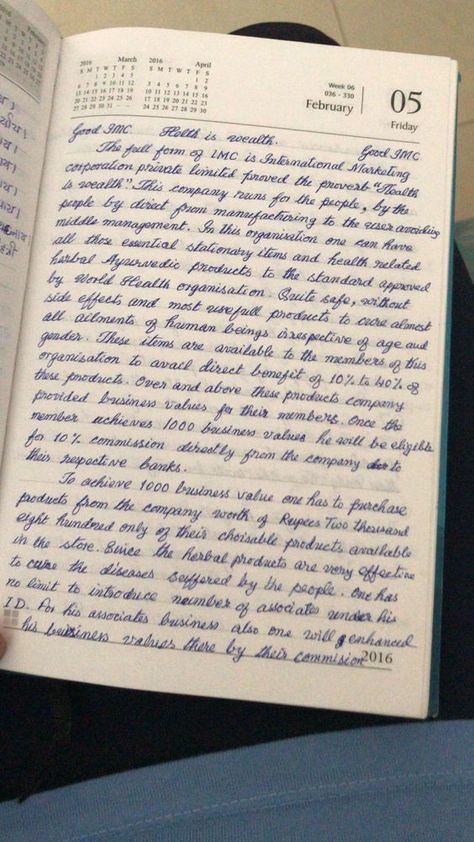 2016 March
S M T W T F S
1 2 3 4 5
6 7 8 9 10 11 12
13 14 15 16 17 18 19
20 21 22 23 24 25 26
27 28 29 30 31
2016 April
S M T W T F S
1 2
3 4 5 6 7 8 9
10 11 12 13 14 15 16
17 18 19 20 21 22 23
24 25 26 27 28 29 30
Week 06
036 - 330
February
05
Friday
Good IMC Health is wealth. Good IMC
The full form of IMC is International Marketing
corporation private limited proved the proverb "Health
is wealth". This company runs for the people, by the
people by direct from manufacturing to the user avoiding
middle management. In this organisation one can have
all those essential stationary items and health related
herbal Ayurvedic products to the standard approved
by World Health organisation. Quite safe, without
side effects and most usefull products to cure almost
all ailments of human beings irrespective of age and
gender. These items are available to the members of this
organisation to avail direct benefit of 10% to 40% of
these products. Over and above these products company
provided business values for their members. Once the
member achieves 1000 business values he will be eligible
for 10% commission directly from the company to
their respective banks.
To achieve 1000 business value one has to purchase
products from the company worth of Rupees Two thousand
eight hundred only of their choisable products available
in the store. Since the herbal products are very effective
to cure the diseases suffered by the people. One has
no limit to introduce number of associates under his
I.D. For his associates business also one will enhanced
his business values there by their commision
2016